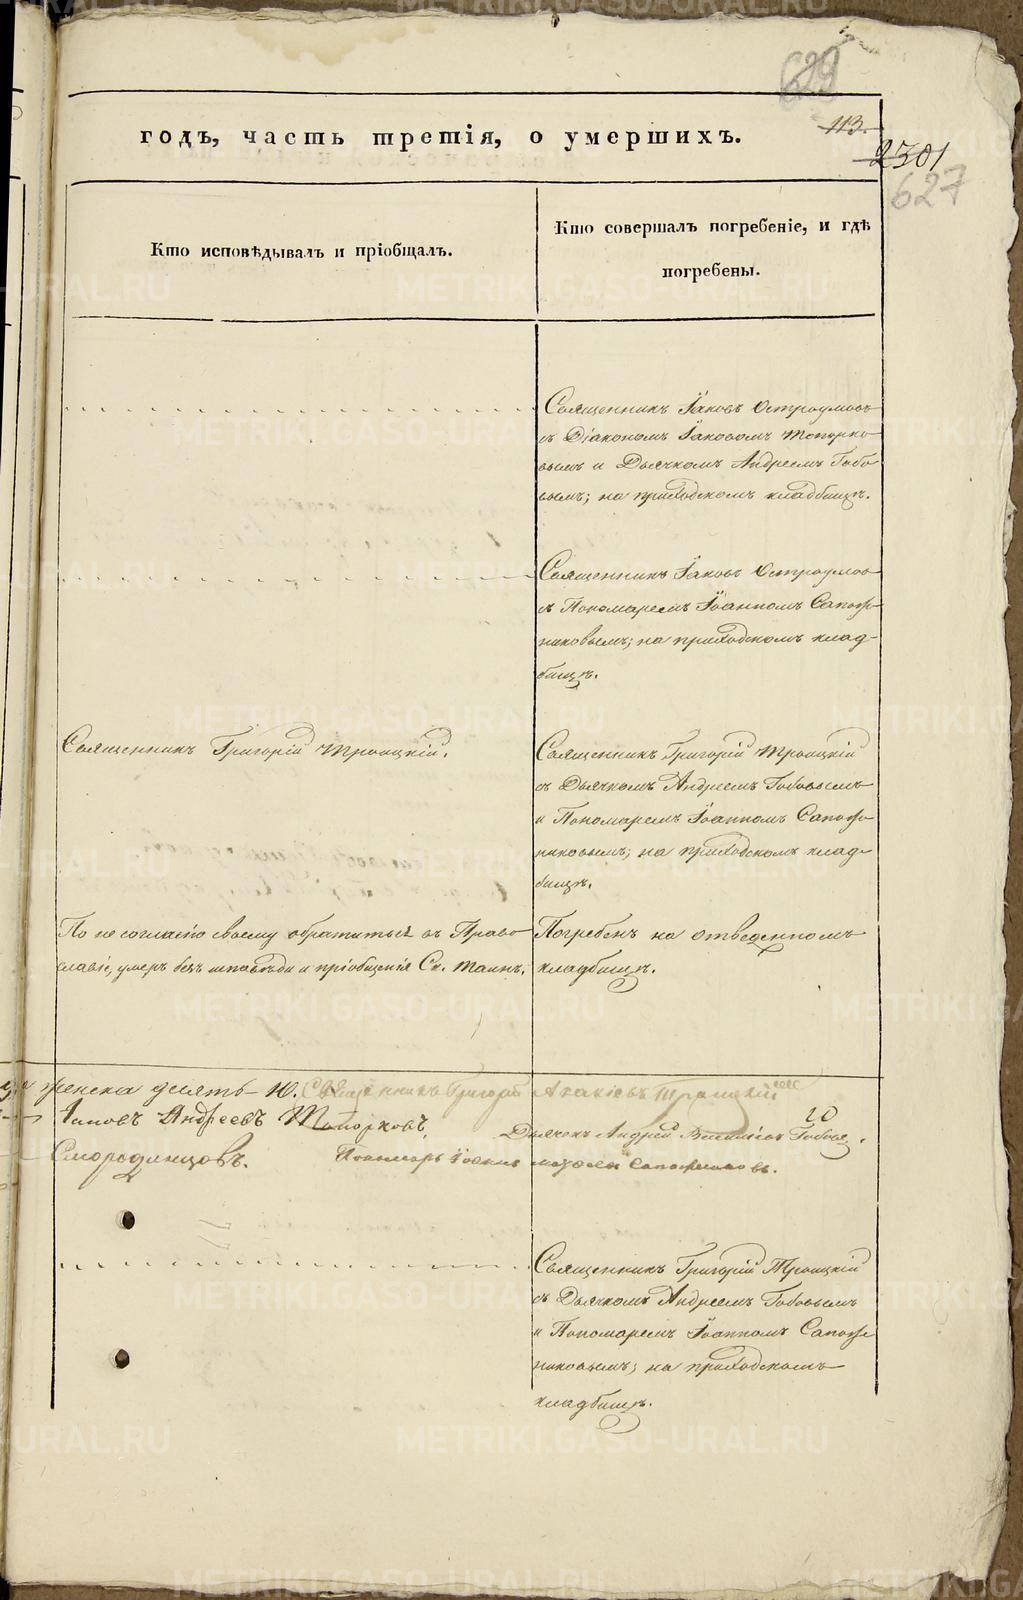 629
годъ, часть третія, о умершихъ.
113.
2301
627
Кто исповѣдывалъ и пріобщалъ.
Кто совершалъ погребеніе, и гдѣ
погребены.
Священникъ Іаковъ Остроумовъ
съ Діакономъ Іаковомъ Топорко-
вымъ и Дьячкомъ Андреемъ Гобо-
вымъ; на приходскомъ кладбищѣ.
Священникъ Іаковъ Остроумовъ
съ Пономаремъ Іоанномъ Сапож-
никовымъ; на приходскомъ клад-
бищѣ.
Священникъ Григорій Троицкій.
Священникъ Григорій Троицкій
съ Дьячкомъ Андреемъ Гобовымъ
и Пономаремъ Іоанномъ Сапож-
никовымъ; на приходскомъ клад-
бищѣ.
По не согласію своему обратиться въ Право-
славіе, умеръ безъ исповѣди и пріобщенія Св. Таинъ.
Погребенъ на отведенномъ
кладбищѣ.
женска десять - 10. Священникъ Григорій Акакіевъ Троицкій
Іаковъ Андреевъ Топорковъ, Дьячокъ Андрей Васильевъ Гобовъ.
Смородинцовъ. Пономарь Іоаннъ Сапожниковъ.
Священникъ Григорій Троицкій
съ Дьячкомъ Андреемъ Гобовымъ
и Пономаремъ Іоанномъ Сапож-
никовымъ; на приходскомъ
кладбищѣ.
METRIKI.GASO-URAL.RU